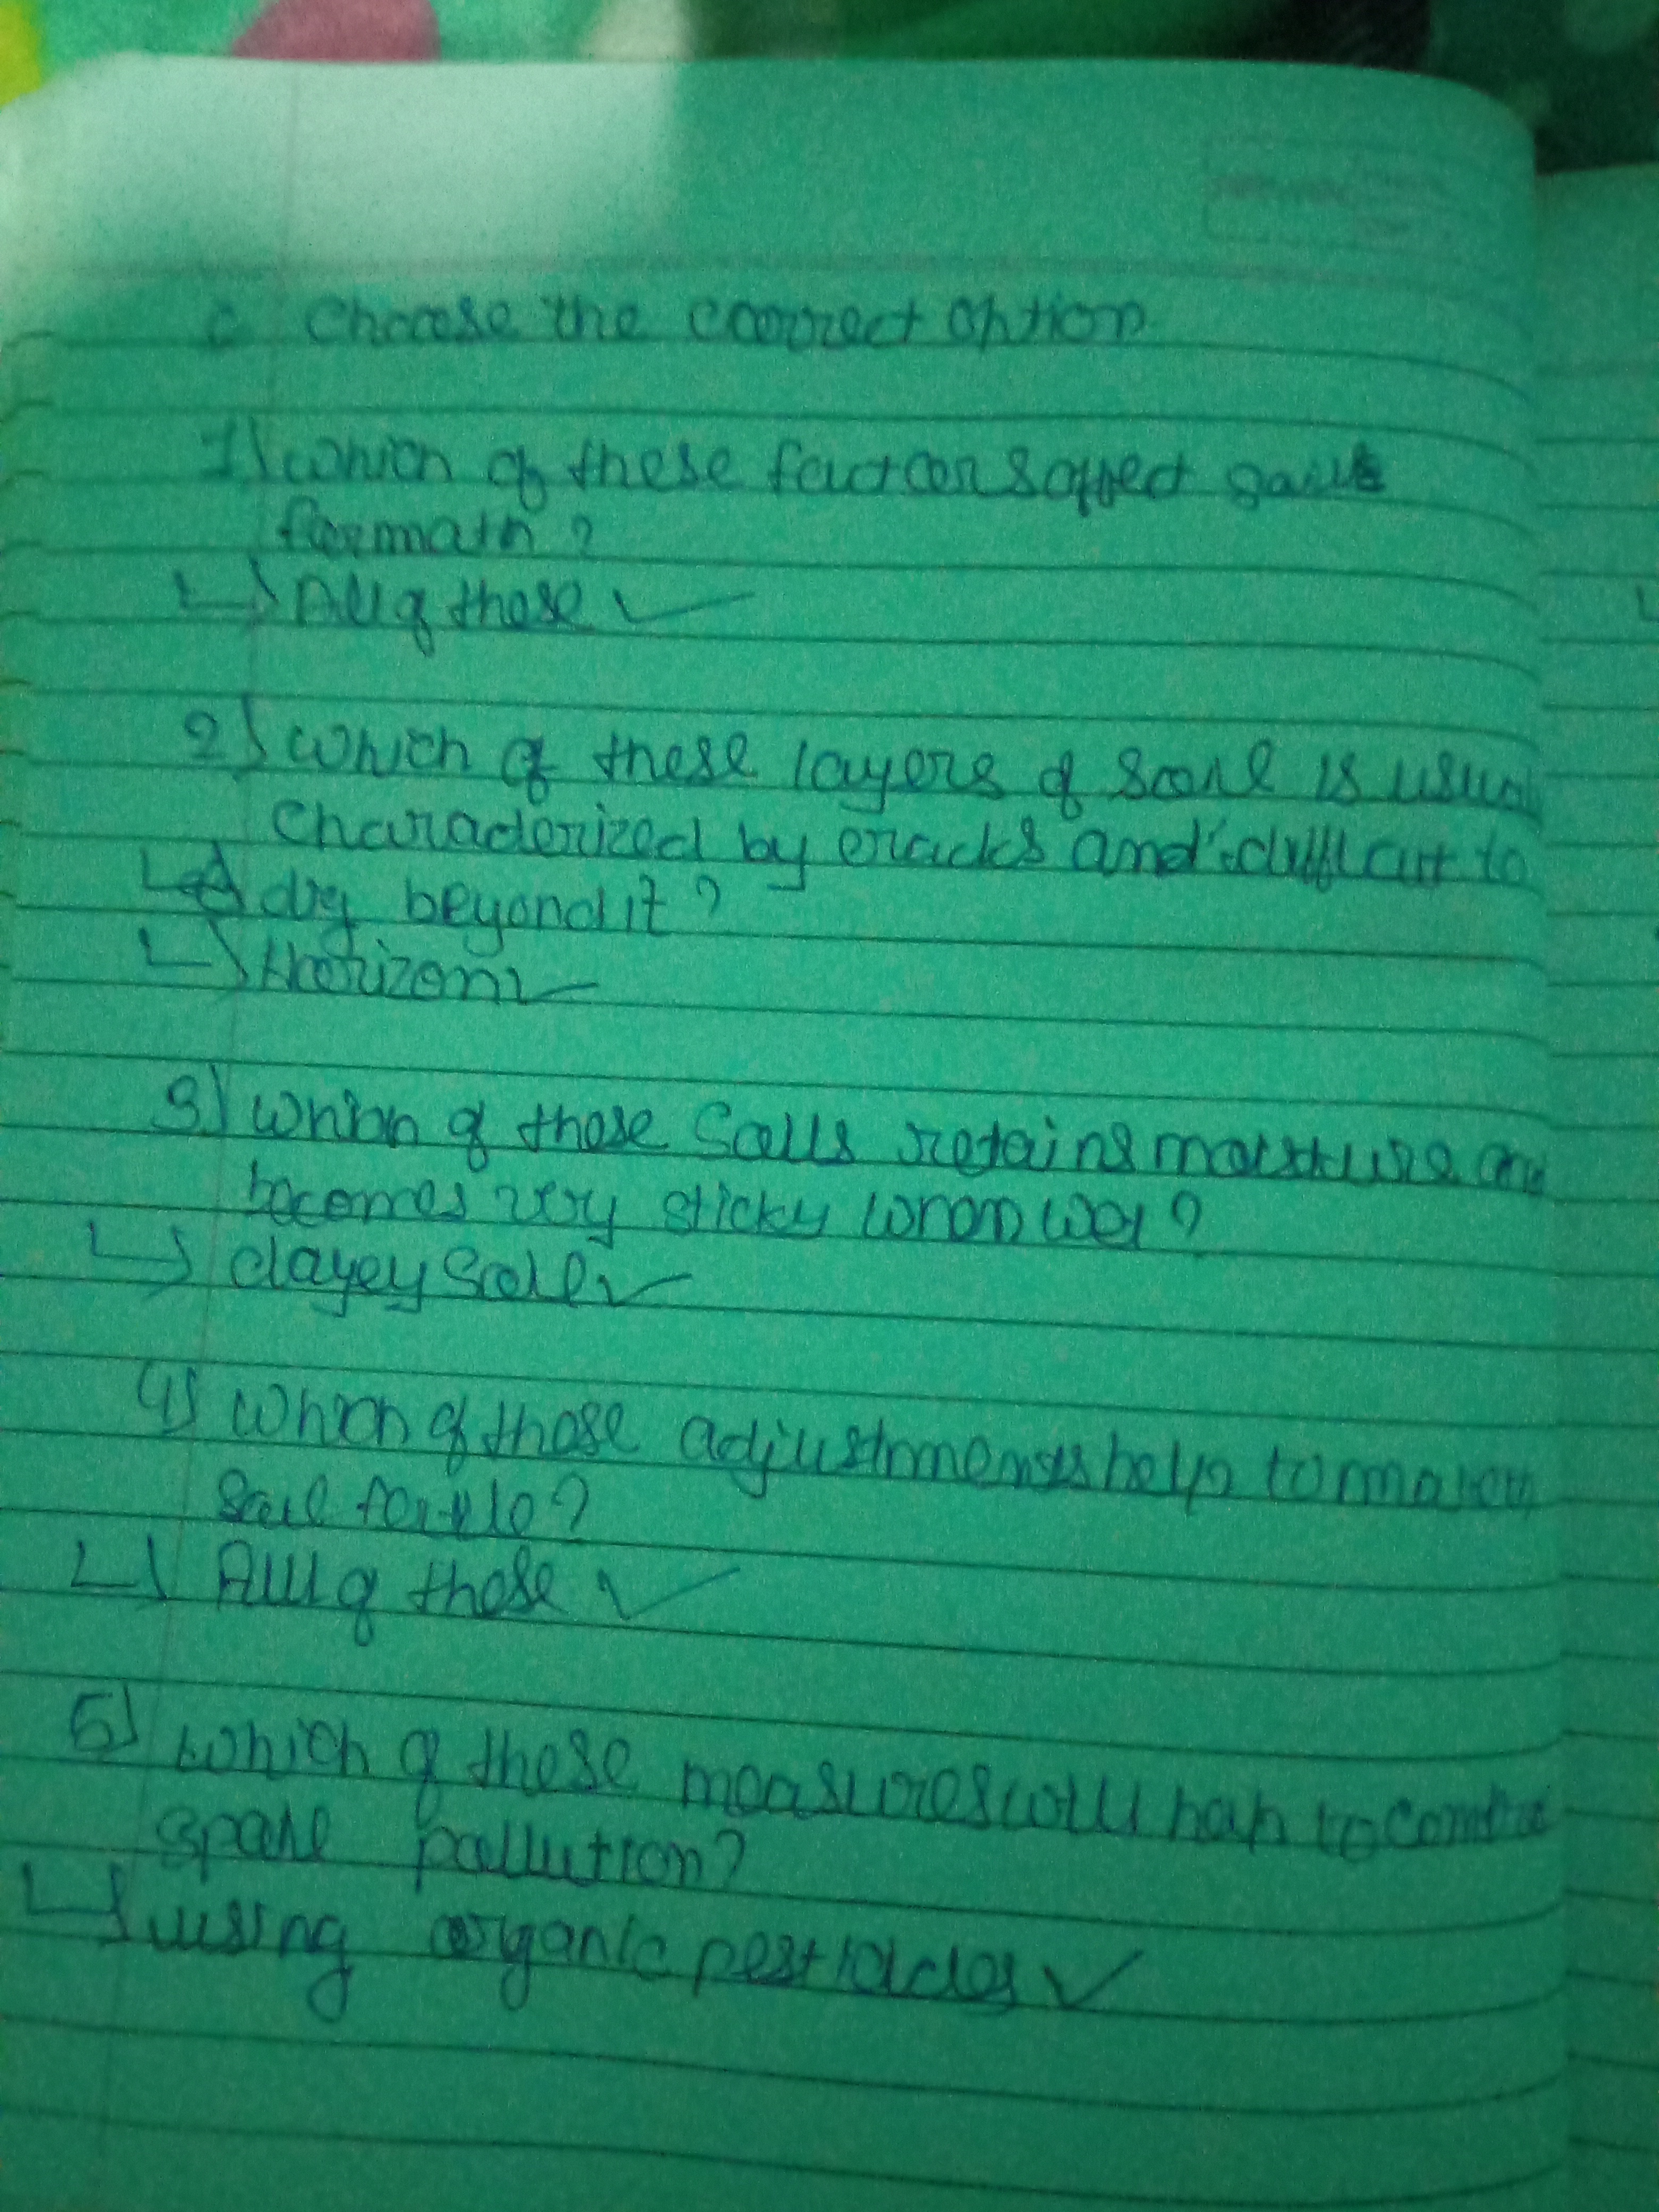 C Choose the correct option
1) which of these factors affect soil
formatn?
↳ All of these ✓
2) Which of these layers of soil is usual
characterized by cracks and difficult to
dig beyond it?
↳ Horizon ✓
3) which of these soils retains moisture and
becomes very sticky when wet?
↳ clayey soil ✓
4) which of these adjustments help to
soil
↳ All of these ✓
5) which of these measures will help to
pollution?
↳ using organic pesticides ✓